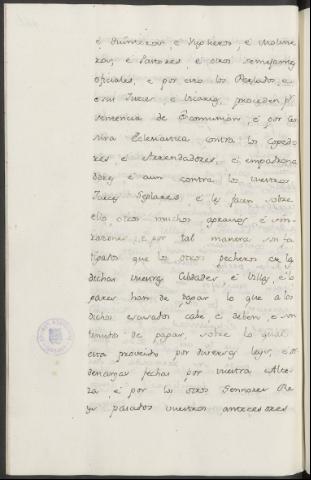 é Quinteros, é Yugueros, é Moline
ros, é Pastores, é otros semejantes
oficiales, é por esto los Perlados, é
e sus Jueces é Vicarios, proceden pr
sentencia de Excomunion, é por cen
sura Eclesiastica contra los Cogedo
res é Arrendadores, é empadrona
dores é aun contra los vuestros
Jueces Seglares, é les facen sobre
ello otros muchos agravios é sin
razones é por tal manera son fa
tigados que los otros pecheros en la
dichas vuestras Cibdades é Villas, é lo
gares han de pagar lo que a los
dichos escusados cabe é deben, é son
tenutos de pagar, sobre lo qual
esta proveido por diversas leyes, é or
denanzas fechas por vuestra Alte
za, é por los otros Sennores Re
yes pasados vuestros antecesores